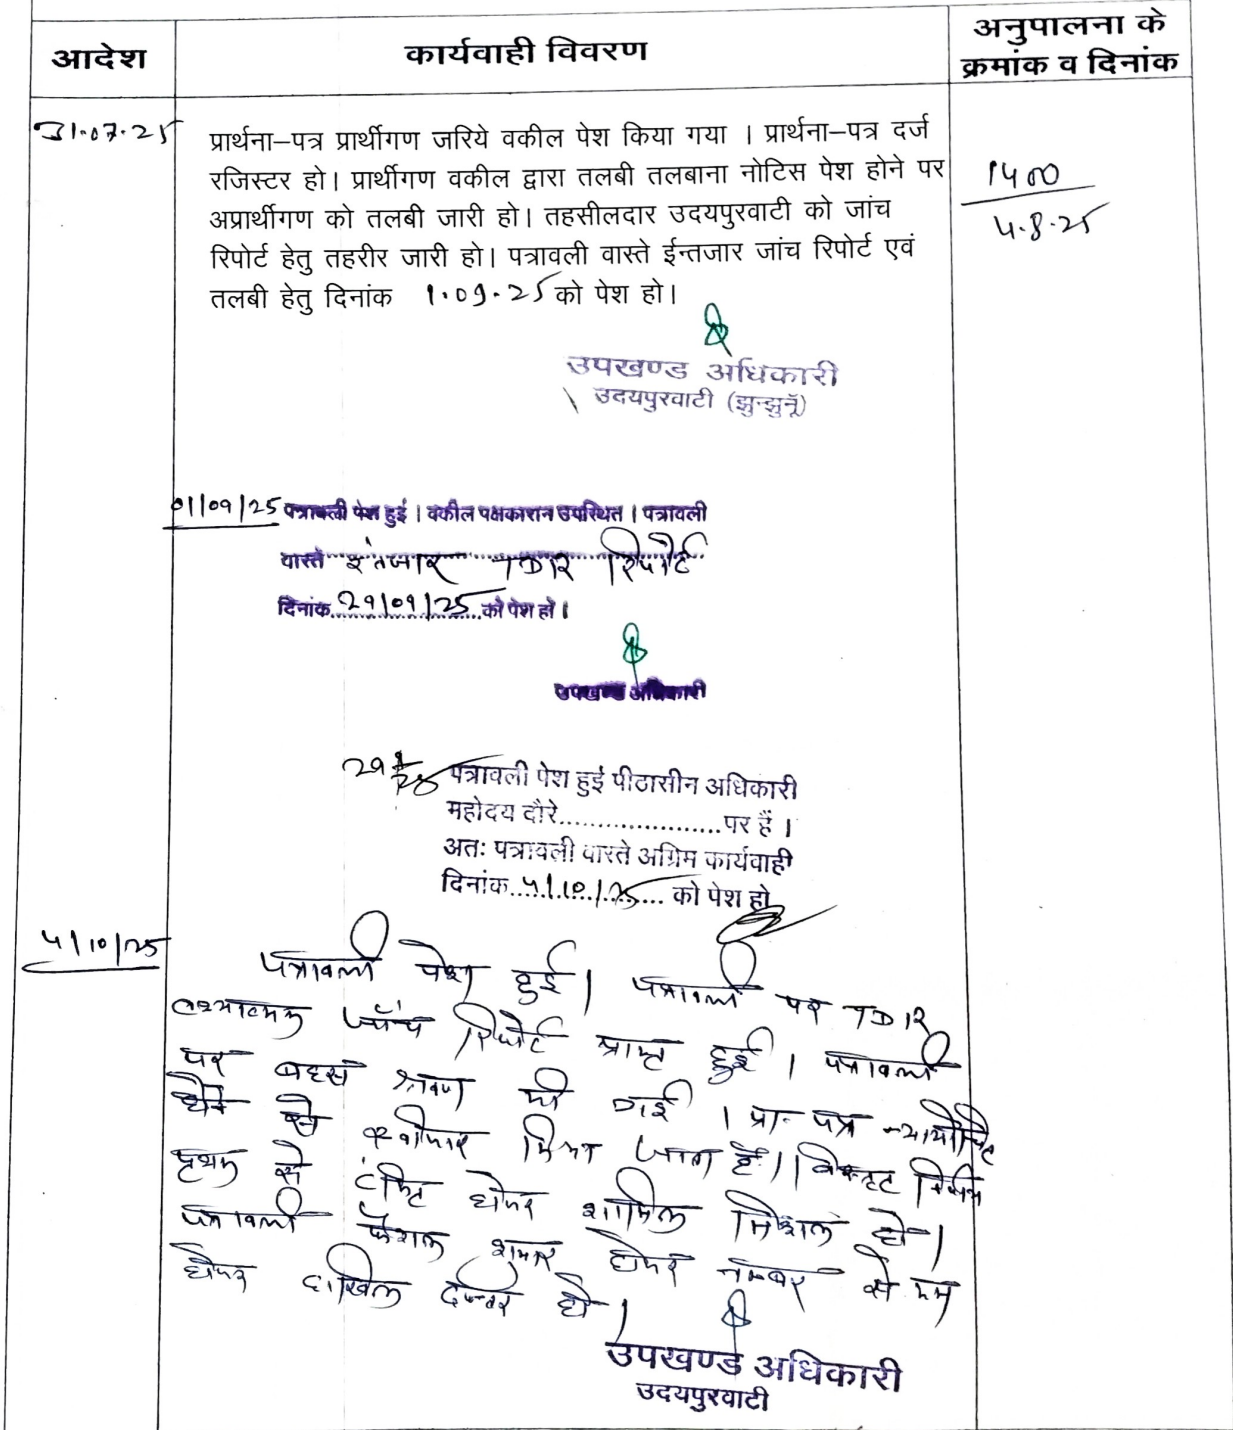 आदेश
कार्यवाही विवरण
अनुपालना के
क्रमांक व दिनांक
31.07.25
प्रार्थना–पत्र प्रार्थीगण जरिये वकील पेश किया गया । प्रार्थना–पत्र दर्ज
रजिस्टर हो। प्रार्थीगण वकील द्वारा तलबी तलबाना नोटिस पेश होने पर
अप्रार्थीगण को तलबी जारी हो। तहसीलदार उदयपुरवाटी को जांच
रिपोर्ट हेतु तहरीर जारी हो। पत्रावली वास्ते ईन्तजार जांच रिपोर्ट एवं
तलबी हेतु दिनांक 1.09.25 को पेश हो।
1400
4.8.25
उपखण्ड अधिकारी
उदयपुरवाटी (झुन्झुनूॅं)
01/09/25 पत्रावली पेश हुई । वकील पक्षकारान उपस्थित । पत्रावली
वास्ते इंतजार TDR रिपोर्ट
दिनांक 29/09/25 को पेश हो ।
उपखण्ड अधिकारी
29 पत्रावली पेश हुई पीठासीन अधिकारी
महोदय दौरे.....................पर हैं ।
अतः पत्रावली वास्ते अग्रिम कार्यवाही
दिनांक 4/10/25 को पेश हो
4/10/25
पत्रावली पेश हुई। पत्रावली पर TDR
तथ्यात्मक जाँच रिपोर्ट प्राप्त हुई। पत्रावली
पर बहस श्रवण की गई । प्रा- पत्र न्यायोचित
होने से स्वीकार किया जाता है। विस्तृत निर्णय
पृथक से टंकित होकर शामिल मिशल हो।
पत्रावली फैसल शुमार होकर नम्बर से कम
होकर दाखिल दफ्तर हो।
उपखण्ड अधिकारी
उदयपुरवाटी